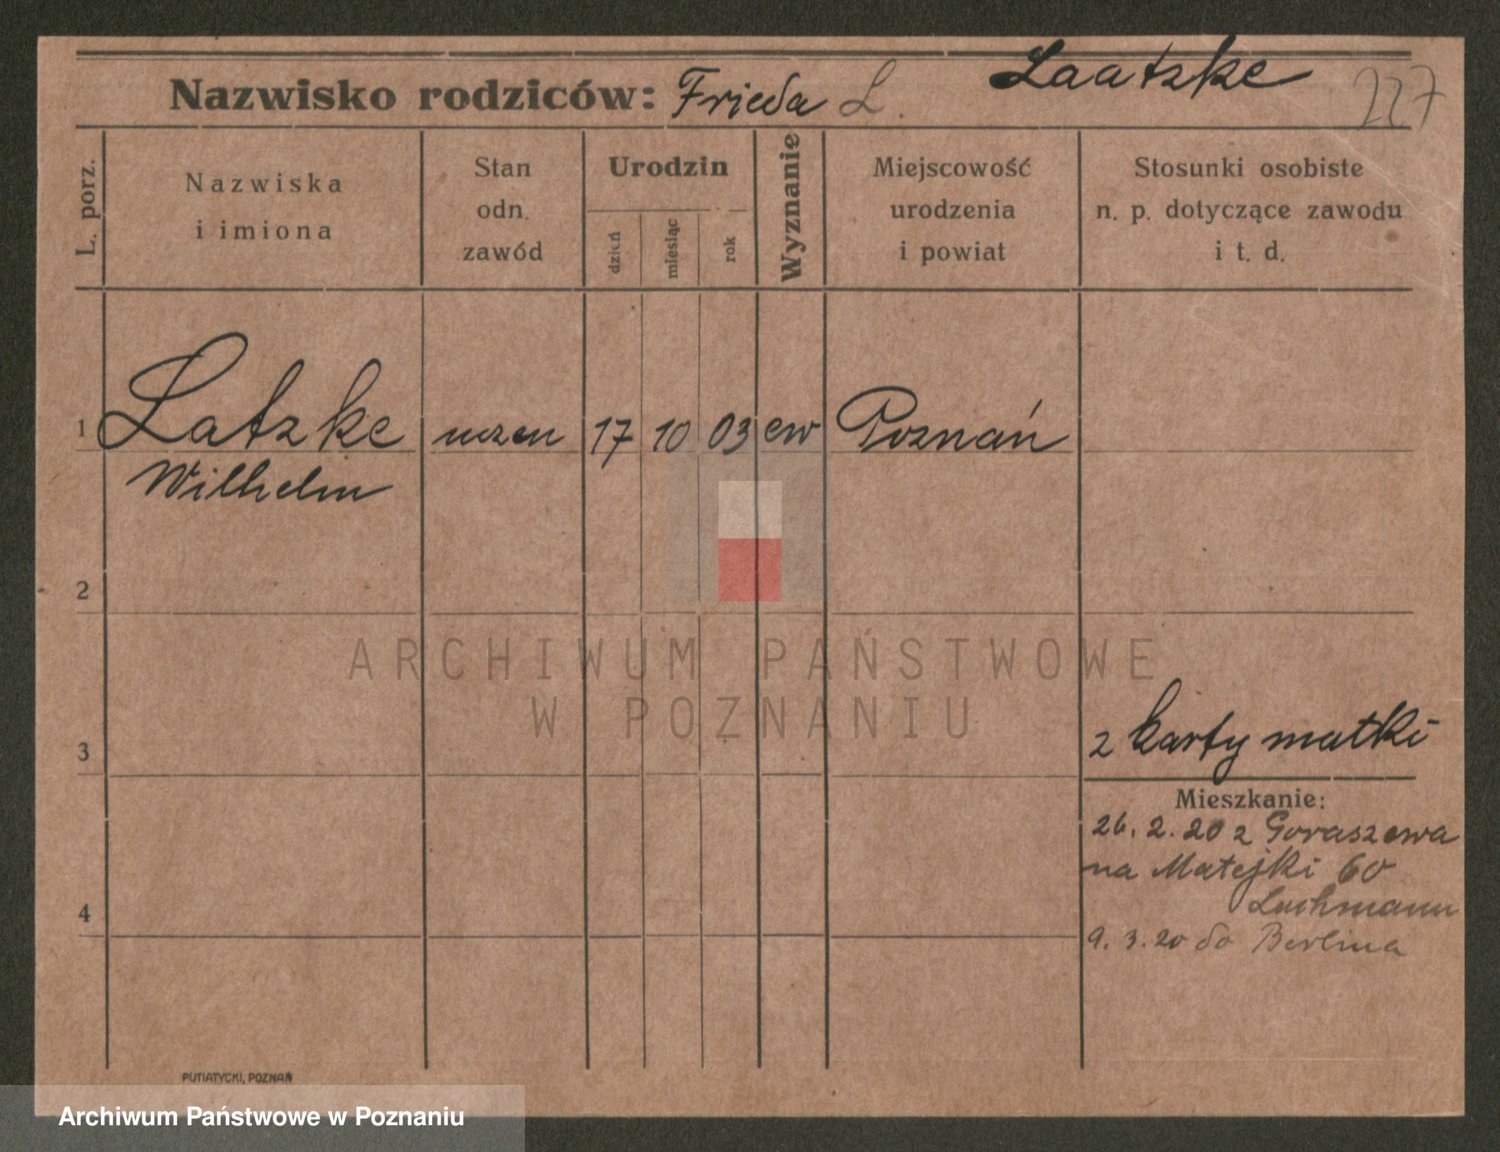 Laatzke
Nazwisko rodziców: Frieda L. 227
L. porz.
Nazwiska
i imiona
Stan
odn.
zawód
Urodzin
dzień
miesiąc
rok
Wyznanie
Miejscowość
urodzenia
i powiat
Stosunki osobiste
n. p. dotyczące zawodu
i t. d.
1 Latzke uczeń 17 10 03 ew Poznań
Wilhelm
2
ARCHIWUM PAŃSTWOWE
W POZNANIU
3
z karty matki
Mieszkanie:
26. 2. 20 z Goraszewa
na Matejki 60
Lachmann
4
9. 3. 20 do Berlina
PUTIATYCKI, POZNAŃ
Archiwum Państwowe w Poznaniu